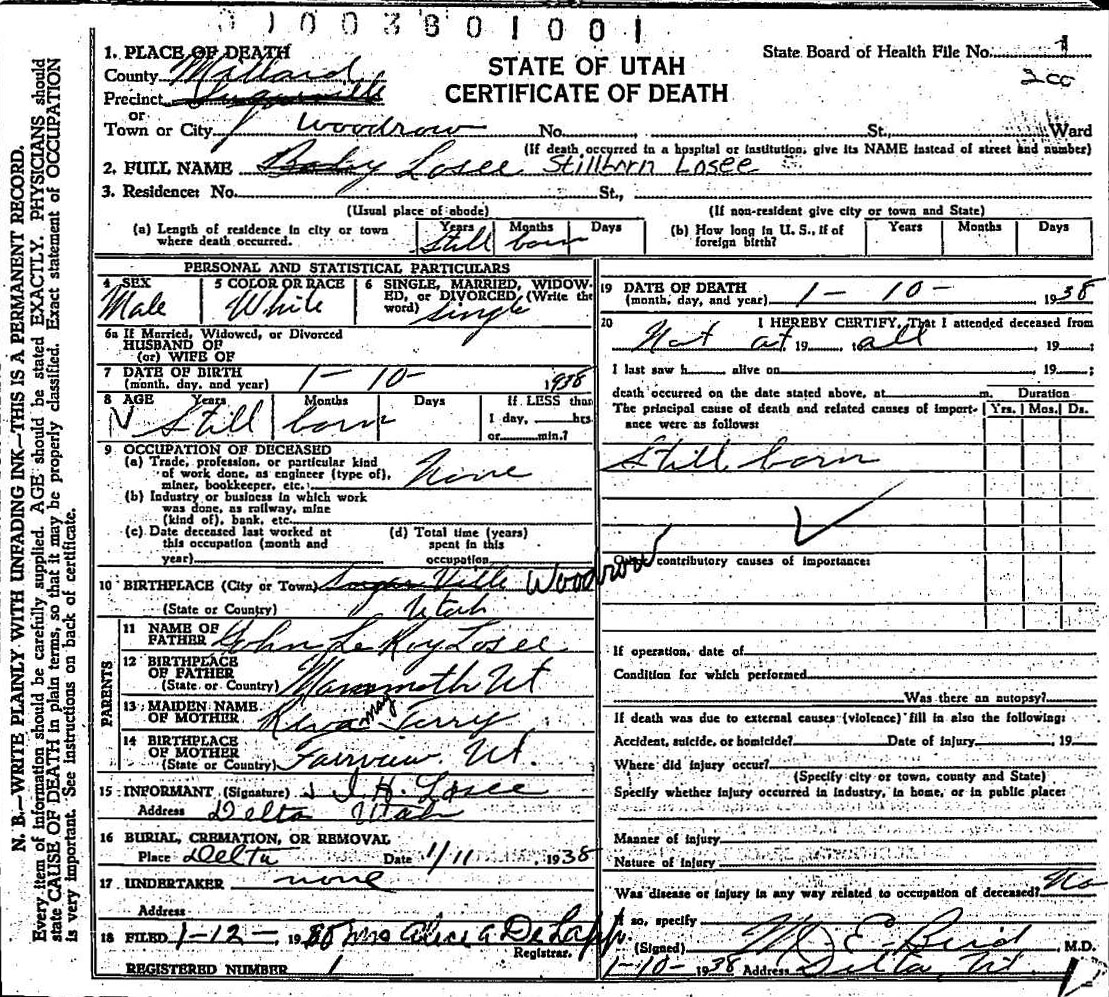 01003801001
1. PLACE OF DEATH
County Millard
Precinct Sugarville
or
Town or City Woodrow No. St., Ward
STATE OF UTAH
CERTIFICATE OF DEATH
State Board of Health File No. 1
200
(If death occurred in a hospital or institution, give its NAME instead of street and number)
2. FULL NAME Baby Losee Stillborn Losee
3. Residence: No. St.,
(Usual place of abode) (If non-resident give city or town and State)
(a) Length of residence in city or town where death occurred. Years Months Days
Still born
(b) How long in U. S., if of foreign birth? Years Months Days
PERSONAL AND STATISTICAL PARTICULARS
4 SEX
Male
5 COLOR OR RACE
White
6 SINGLE, MARRIED, WIDOW-
ED, or DIVORCED, (Write the
word) Single
6a If Married, Widowed, or Divorced
HUSBAND OF
(or) WIFE OF
7 DATE OF BIRTH
(month, day, and year) 1-10- 1938
8 AGE Years Months Days If LESS than
Still born 1 day, hrs.
or min.?
9 OCCUPATION OF DECEASED
(a) Trade, profession, or particular kind
of work done, as engineer (type of),
miner, bookkeeper, etc. None
(b) Industry or business in which work
was done, as railway, mine
(kind of), bank, etc.
(c) Date deceased last worked at
this occupation (month and
year)
(d) Total time (years)
spent in this
occupation
10 BIRTHPLACE (City or Town) Sugar Ville Woodrow
(State or Country) Utah
PARENTS
11 NAME OF
FATHER John Le Roy Losee
12 BIRTHPLACE
OF FATHER
(State or Country) Mammoth Ut
13 MAIDEN NAME
OF MOTHER Reva May Terry
14 BIRTHPLACE
OF MOTHER
(State or Country) Fairview Ut.
15 INFORMANT (Signature) J. H. Losee
Address Delta Utah
16 BURIAL, CREMATION, OR REMOVAL
Place Delta Date 1/11, 1938
17 UNDERTAKER none
Address
18 FILED 1-12-, 1938 Mrs Alice A De Lapp
Registrar.
REGISTERED NUMBER 1
19 DATE OF DEATH
(month, day, and year) 1-10- 1938
20 I HEREBY CERTIFY, That I attended deceased from
Not at 19, all 19;
I last saw h alive on 19;
death occurred on the date stated above, at m.
Duration
The principal cause of death and related causes of import-
ance were as follows:
Yrs. Mos. Ds.
Still born
contributory causes of importance:
If operation, date of
Condition for which performed
Was there an autopsy?
If death was due to external causes (violence) fill in also the following:
Accident, suicide, or homicide? Date of injury, 19
Where did injury occur?
(Specify city or town, county and State)
Specify whether injury occurred in industry, in home, or in public place:
Manner of injury
Nature of injury
Was disease or injury in any way related to occupation of deceased? No
so, specify
(Signed) M E Bird M.D.
1-10-1938 Address Delta, Ut
N. B.—WRITE PLAINLY WITH UNFADING INK—THIS IS A PERMANENT RECORD.
Every item of information should be carefully supplied. AGE should be stated EXACTLY. PHYSICIANS should
state CAUSE OF DEATH in plain terms, so that it may be properly classified. Exact statement of OCCUPATION
is very important. See instructions on back of certificate.